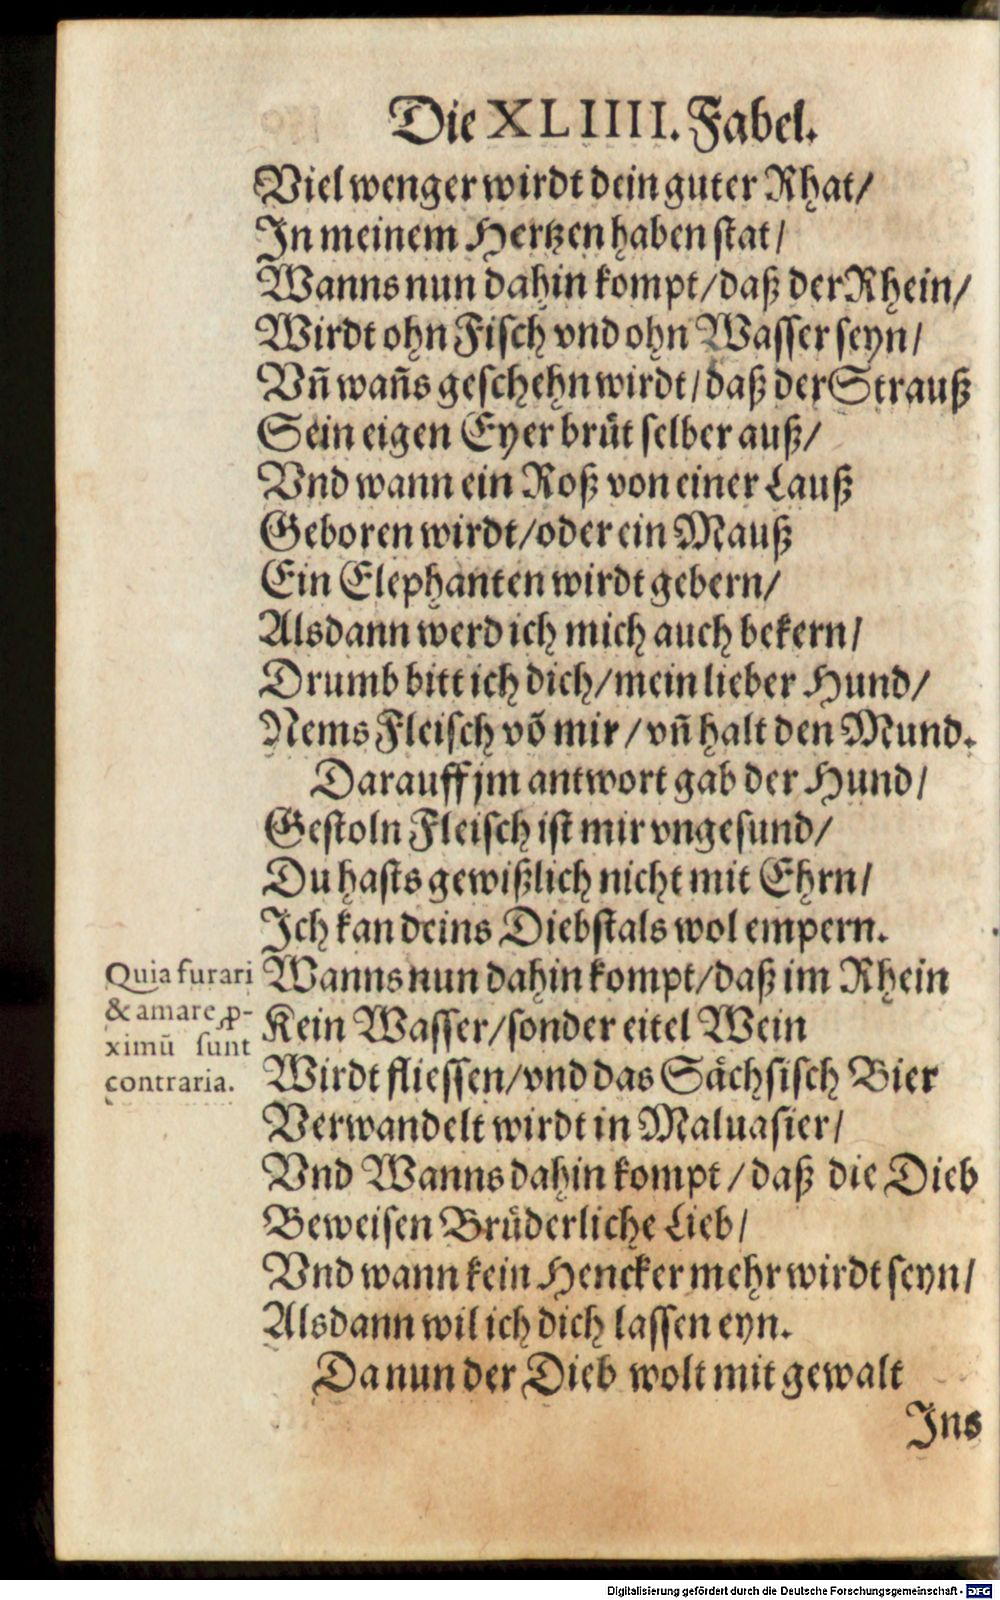 Die XLIIII. Fabel.
Viel wenger wirdt dein guter Rhat/
In meinem Hertzen haben stat/
Wanns nun dahin kompt/daß der Rhein/
Wirdt ohn Fisch vnd ohn Wasser seyn/
Vñ wañs geschehn wirdt/daß der Strauß
Sein eigen Eyer bruͤt selber auß/
Vnd wann ein Roß von einer Lauß
Geboren wirdt/oder ein Mauß
Ein Elephanten wirdt gebern/
Alsdann werd ich mich auch bekern/
Drumb bitt ich dich/mein lieber Hund/
Nems Fleisch võ mir/vñ halt den Mund.
Darauff jm antwort gab der Hund/
Gestoln Fleisch ist mir vngesund/
Du hasts gewißlich nicht mit Ehrn/
Ich kan deins Diebstals wol empern.
Quia furari
& amare ꝓ-
ximũ sunt
contraria.
Wanns nun dahin kompt/daß im Rhein
Kein Wasser/sonder eitel Wein
Wirdt fliessen/vnd das Saͤchsisch Bier
Verwandelt wirdt in Maluasier/
Vnd Wanns dahin kompt/daß die Dieb
Beweisen Bruͤderliche Lieb/
Vnd wann kein Hencker mehr wirdt seyn/
Alsdann wil ich dich lassen eyn.
Da nun der Dieb wolt mit gewalt
Ins
Digitalisierung gefördert durch die Deutsche Forschungsgemeinschaft - DFG